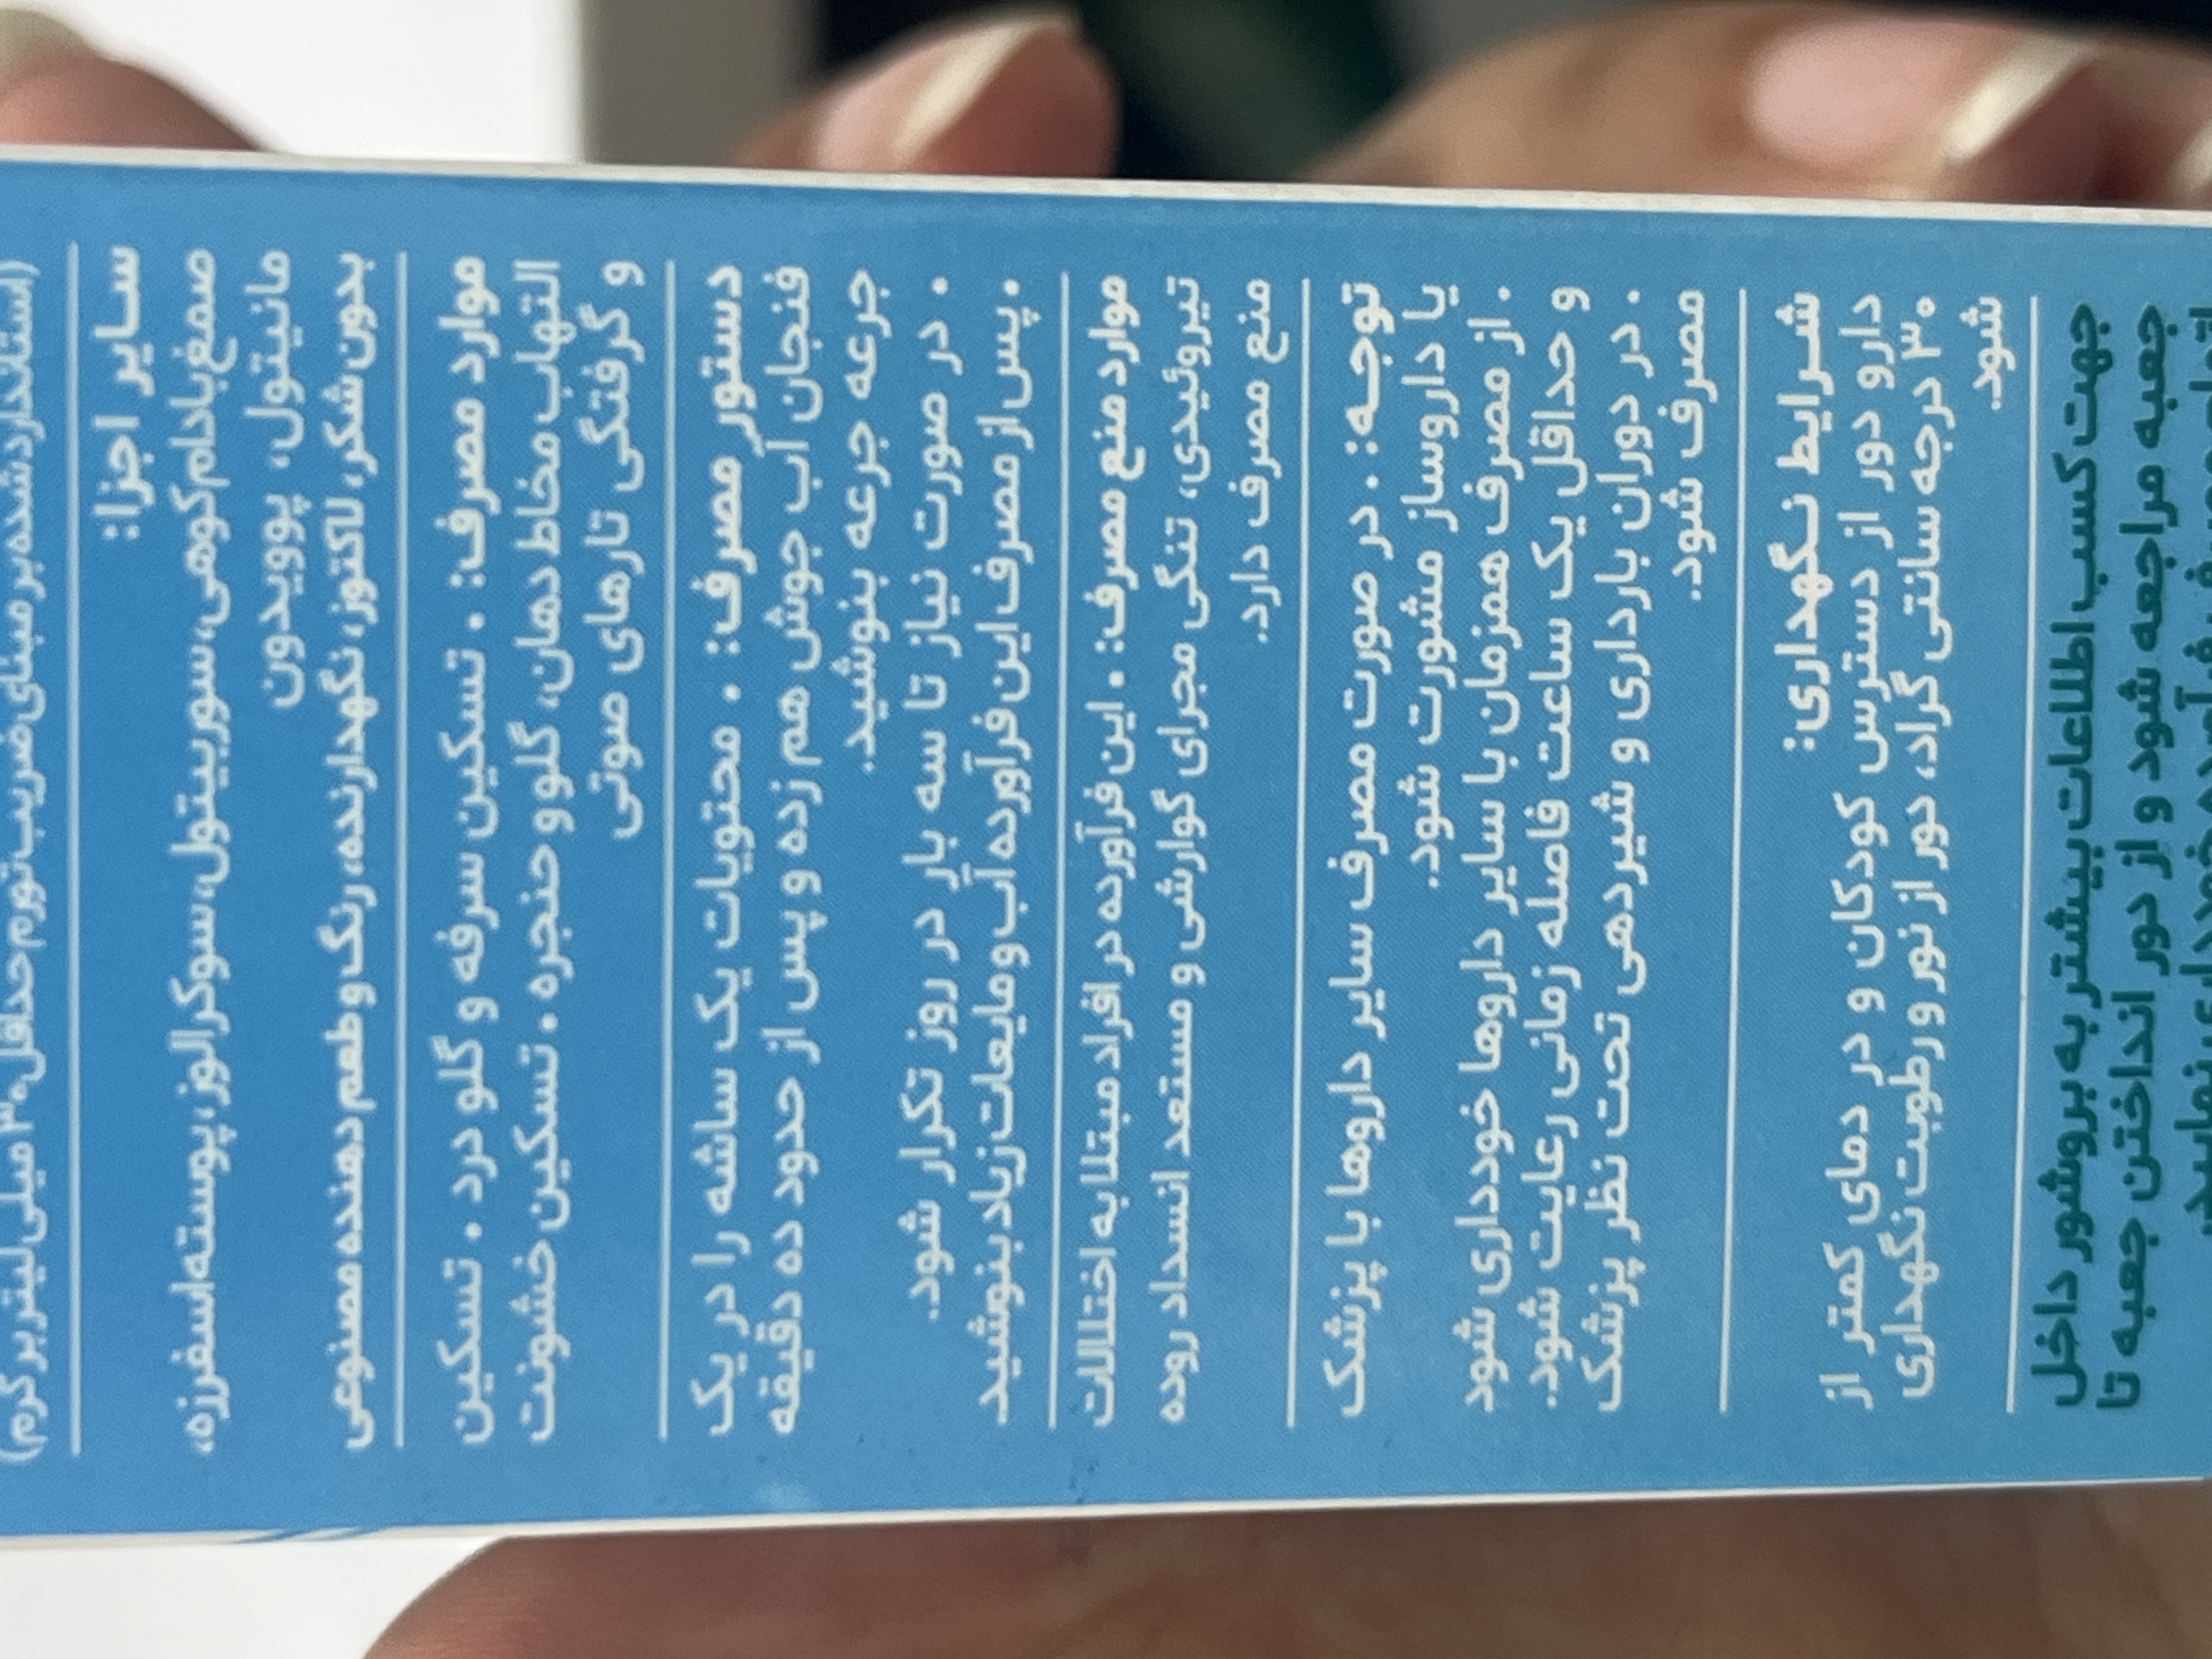 (استاندارد شده بر مبنای ضریب تورم حداقل ۳۰ میلی لیتر بر گرم)
سایر اجزا:
صمغ بادام کوهی، سوربیتول، سوکرالوز، پوسته اسفرزه،
مانیتول، پوویدون
بدون شکر، لاکتوز، نگهدارنده، رنگ و طعم دهنده مصنوعی
موارد مصرف: • تسکین سرفه و گلو درد • تسکین
التهاب مخاط دهان، گلو و حنجره • تسکین خشونت
و گرفتگی تارهای صوتی
دستور مصرف: • محتویات یک ساشه را در یک
فنجان آب جوش هم زده و پس از حدود ده دقیقه
جرعه جرعه بنوشید.
• در صورت نیاز تا سه بار در روز تکرار شود.
• پس از مصرف این فرآورده آب و مایعات زیاد بنوشید
موارد منع مصرف: • این فرآورده در افراد مبتلا به اختلالات
تیروئیدی، تنگی مجرای گوارشی و مستعد انسداد روده
منع مصرف دارد.
توجه: • در صورت مصرف سایر داروها با پزشک
یا داروساز مشورت شود.
• از مصرف همزمان با سایر داروها خودداری شود
و حداقل یک ساعت فاصله زمانی رعایت شود.
• در دوران بارداری و شیردهی تحت نظر پزشک
مصرف شود.
شرایط نگهداری:
دارو دور از دسترس کودکان و در دمای کمتر از
۳۰ درجه سانتی گراد، دور از نور و رطوبت نگهداری
شود.
جهت کسب اطلاعات بیشتر به بروشور داخل
جعبه مراجعه شود و از دور انداختن جعبه تا